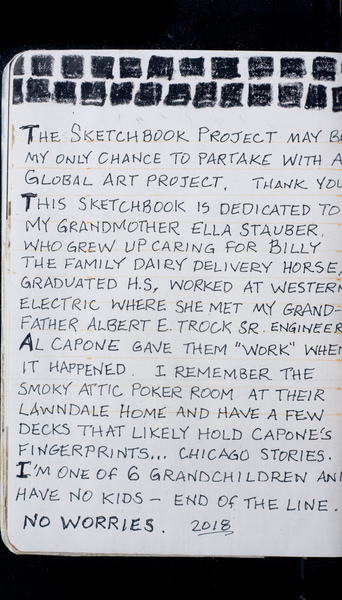 THE SKETCHBOOK PROJECT MAY B
MY ONLY CHANCE TO PARTAKE WITH A
GLOBAL ART PROJECT. THANK YOU
THIS SKETCHBOOK IS DEDICATED TO
MY GRANDMOTHER ELLA STAUBER,
WHO GREW UP CARING FOR BILLY
THE FAMILY DAIRY DELIVERY HORSE,
GRADUATED H.S, WORKED AT WESTERN
ELECTRIC WHERE SHE MET MY GRAND-
FATHER ALBERT E. TROCK SR. ENGINEER
AL CAPONE GAVE THEM "WORK" WHEN
IT HAPPENED. I REMEMBER THE
SMOKY ATTIC POKER ROOM AT THEIR
LAWNDALE HOME AND HAVE A FEW
DECKS THAT LIKELY HOLD CAPONE'S
FINGERPRINTS... CHICAGO STORIES.
I'M ONE OF 6 GRANDCHILDREN AN
HAVE NO KIDS – END OF THE LINE.
NO WORRIES. 2018